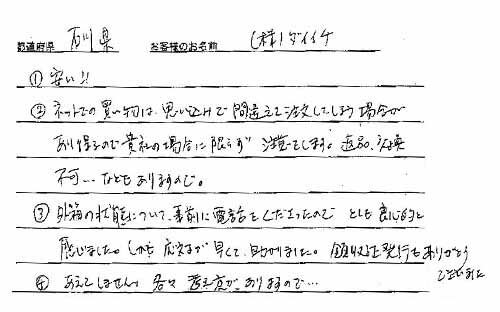 都道府県 石川県 お客様のお名前 (株)ダイイチ
① 安い!!
② ネットでの買い物は、思い込みで間違えて注文してしまう場合が
あり得るので貴社の場合に限らず 注意してします。返品、交換
不可… などもありますので。
③ 外箱の状態について、事前に電話をくださったので とても良心的と
感じました。しかも 応対まで早くて、助かりました。領収証発行もありがとう
ございました
④ あえてしません。各々 考え方がありますので…